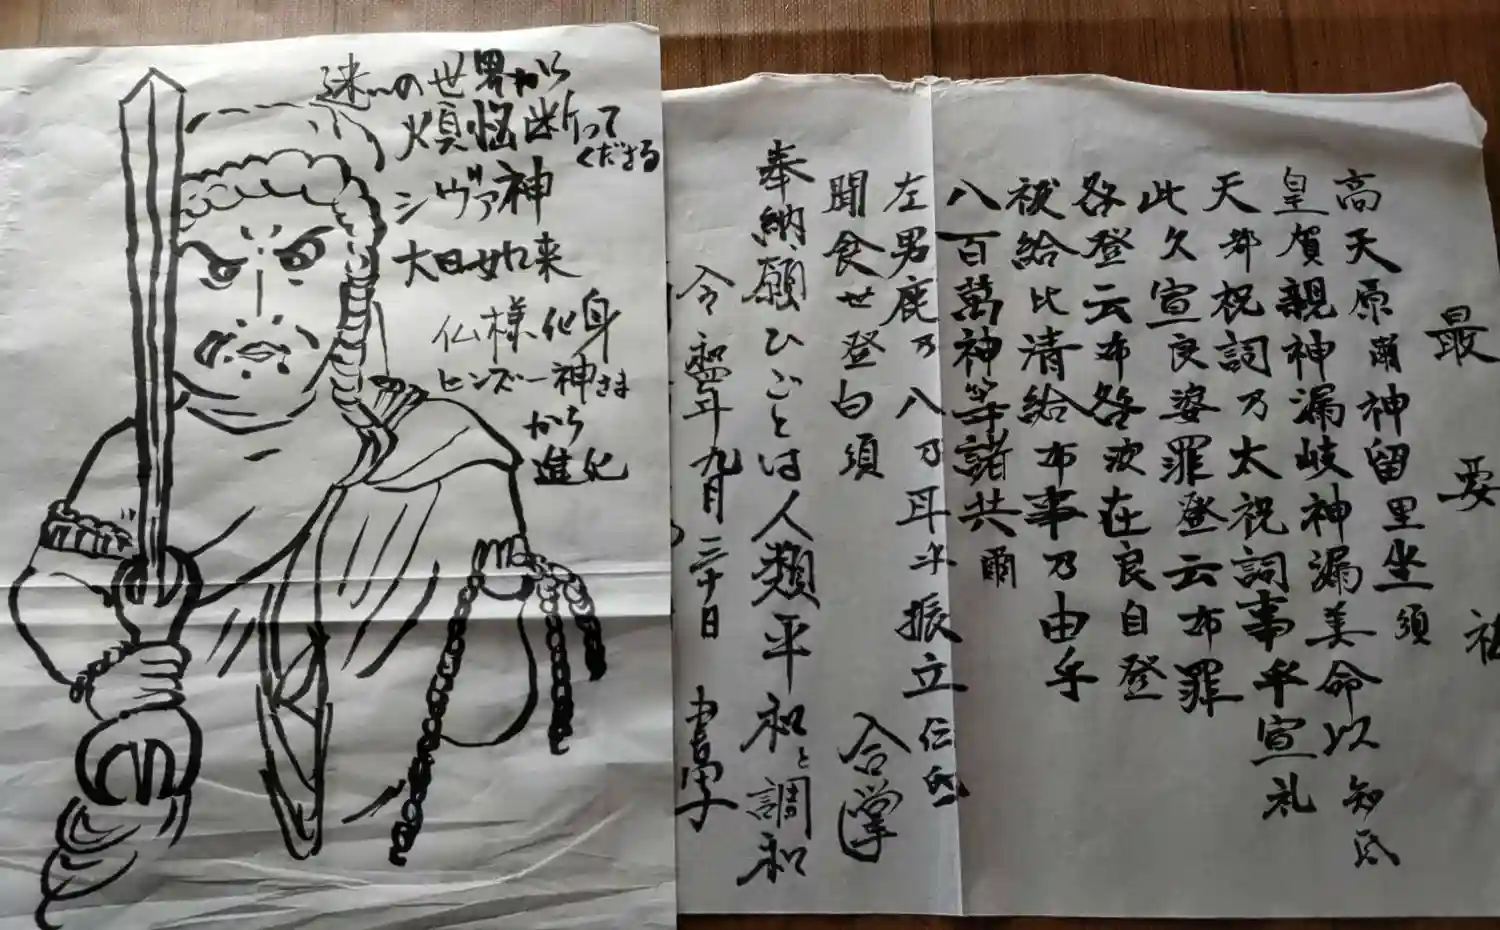 迷いの世界から
煩悩断って
くださる
シヴァ神
大日如来
仏様化身
ヒンズー神さま
から
進化
最要
高天原爾神留里坐須
皇賀親神漏岐神漏美命以知氐
天都祝詞乃太祝詞事乎宣礼
此久宣良婆罪登云布罪
咎登云布咎波在良自登
祓給比清給布事乃由乎
八百萬神等諸共爾
左男鹿乃八乃耳乎振立
聞食世登白須 合掌
奉納願ひごとは人類平和と調和
年九月三十日